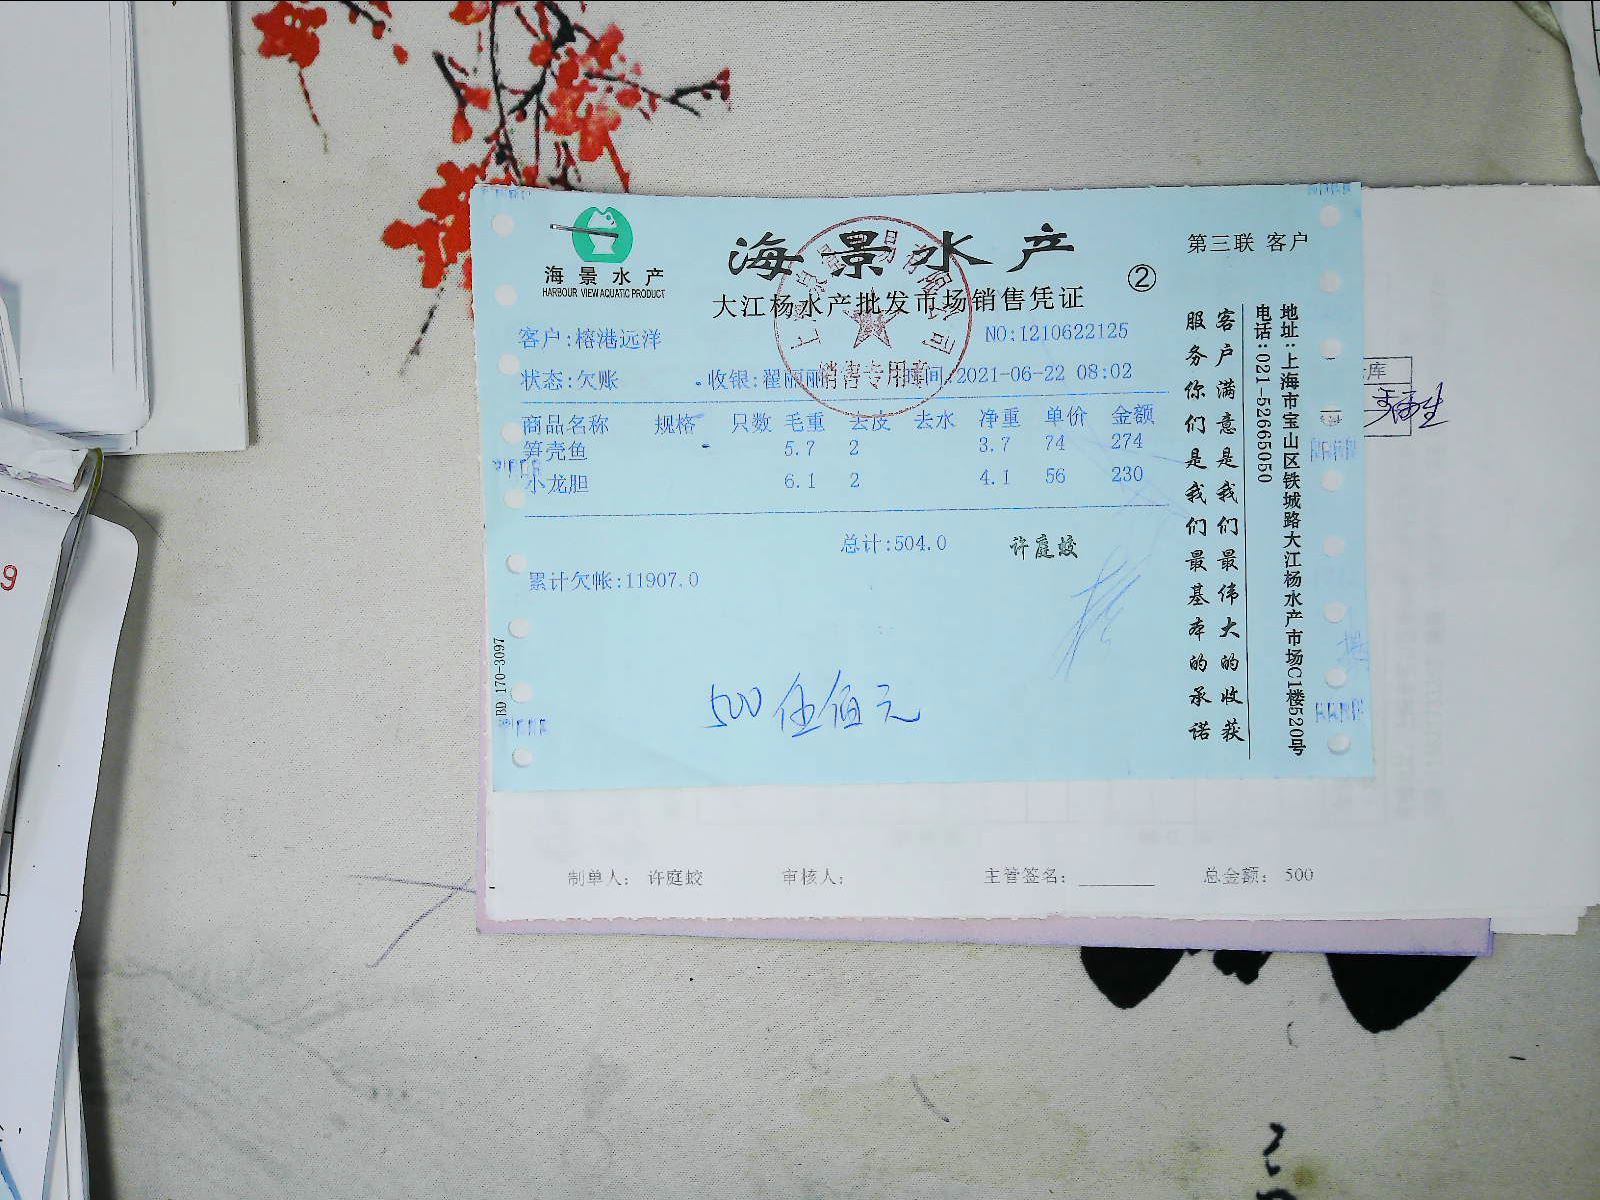 海景水产
HARBOUR VIEW AQUATIC PRODUCT
海景水产
大江杨水产批发市场销售凭证
②
第三联 客户
客户:榕港远洋
NO:1210622125
状态:欠账 收银:翟丽丽 时间:2021-06-22 08:02
销售专用章
商品名称 规格 只数 毛重 去皮 去水 净重 单价 金额
笋壳鱼 5.7 2 3.7 74 274
小龙胆 6.1 2 4.1 56 230
总计:504.0 许庭蛟
累计欠帐:11907.0
500 伍佰元
BD 170-3097
客户满意是我们最伟大的收获
服务你们是我们最基本的承诺
地址:上海市宝山区铁城路大江杨水产市场C1楼520号
电话:021-52665050
库
制单人: 许庭蛟 审核人: 主管签名: 总金额: 500
9